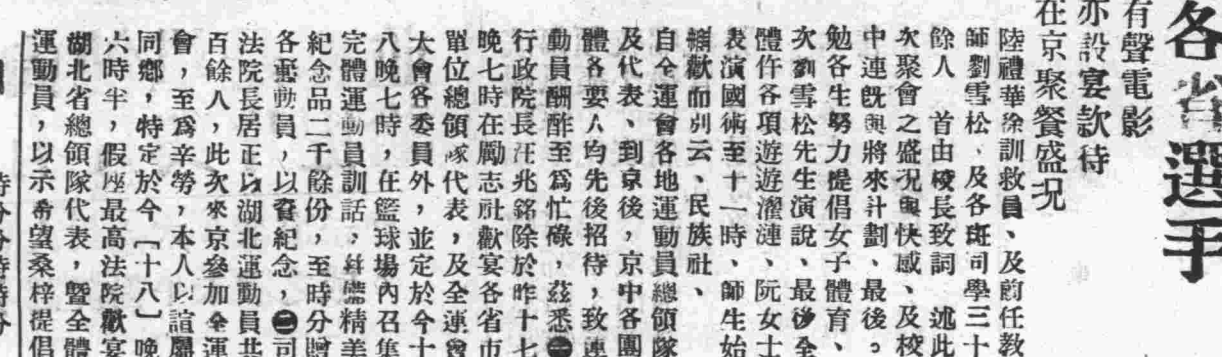 各省選手
有聲電影
亦設宴款待
在京聚餐盛況
陸禮華徐訓救員、及前任教
師劉雪松、及各班司學三十
餘人 首由校長致詞 述此
次聚會之盛況與快感、及校
中連旣與將來計劃、最後。
勉各生努力提倡女子體育、
次劉雪松先生演說、最後全
體仵各項遊遊濯漣、阮女士
表演國術至十一時、師生始
歡而別云、民族社、
自全運會各地運動員總領隊
及代表、到京後，京中各團
體各要人均先後招待，致運
動員酬酢至爲忙碌，茲悉㊀
行政院長汪兆銘除於昨十七
晚七時在勵志社歡宴各省市
單位總領隊代表，及全運會
大會各委員外，並定於今十
八晚七時，在籃球場內召集
完體運動員訓話，幷備精美
紀念品二千餘份，至時分贈
各運動員，以資紀念，㊁司
法院長居正以湖北運動員北
百餘人，此次來京參加全運
會，至爲辛勞，本人以誼屬
同鄉，特定於今［十八］晚
六時半，假座最高法院歡宴
湖北省總領隊代表，暨全體
運動員，以示希望桑梓提倡